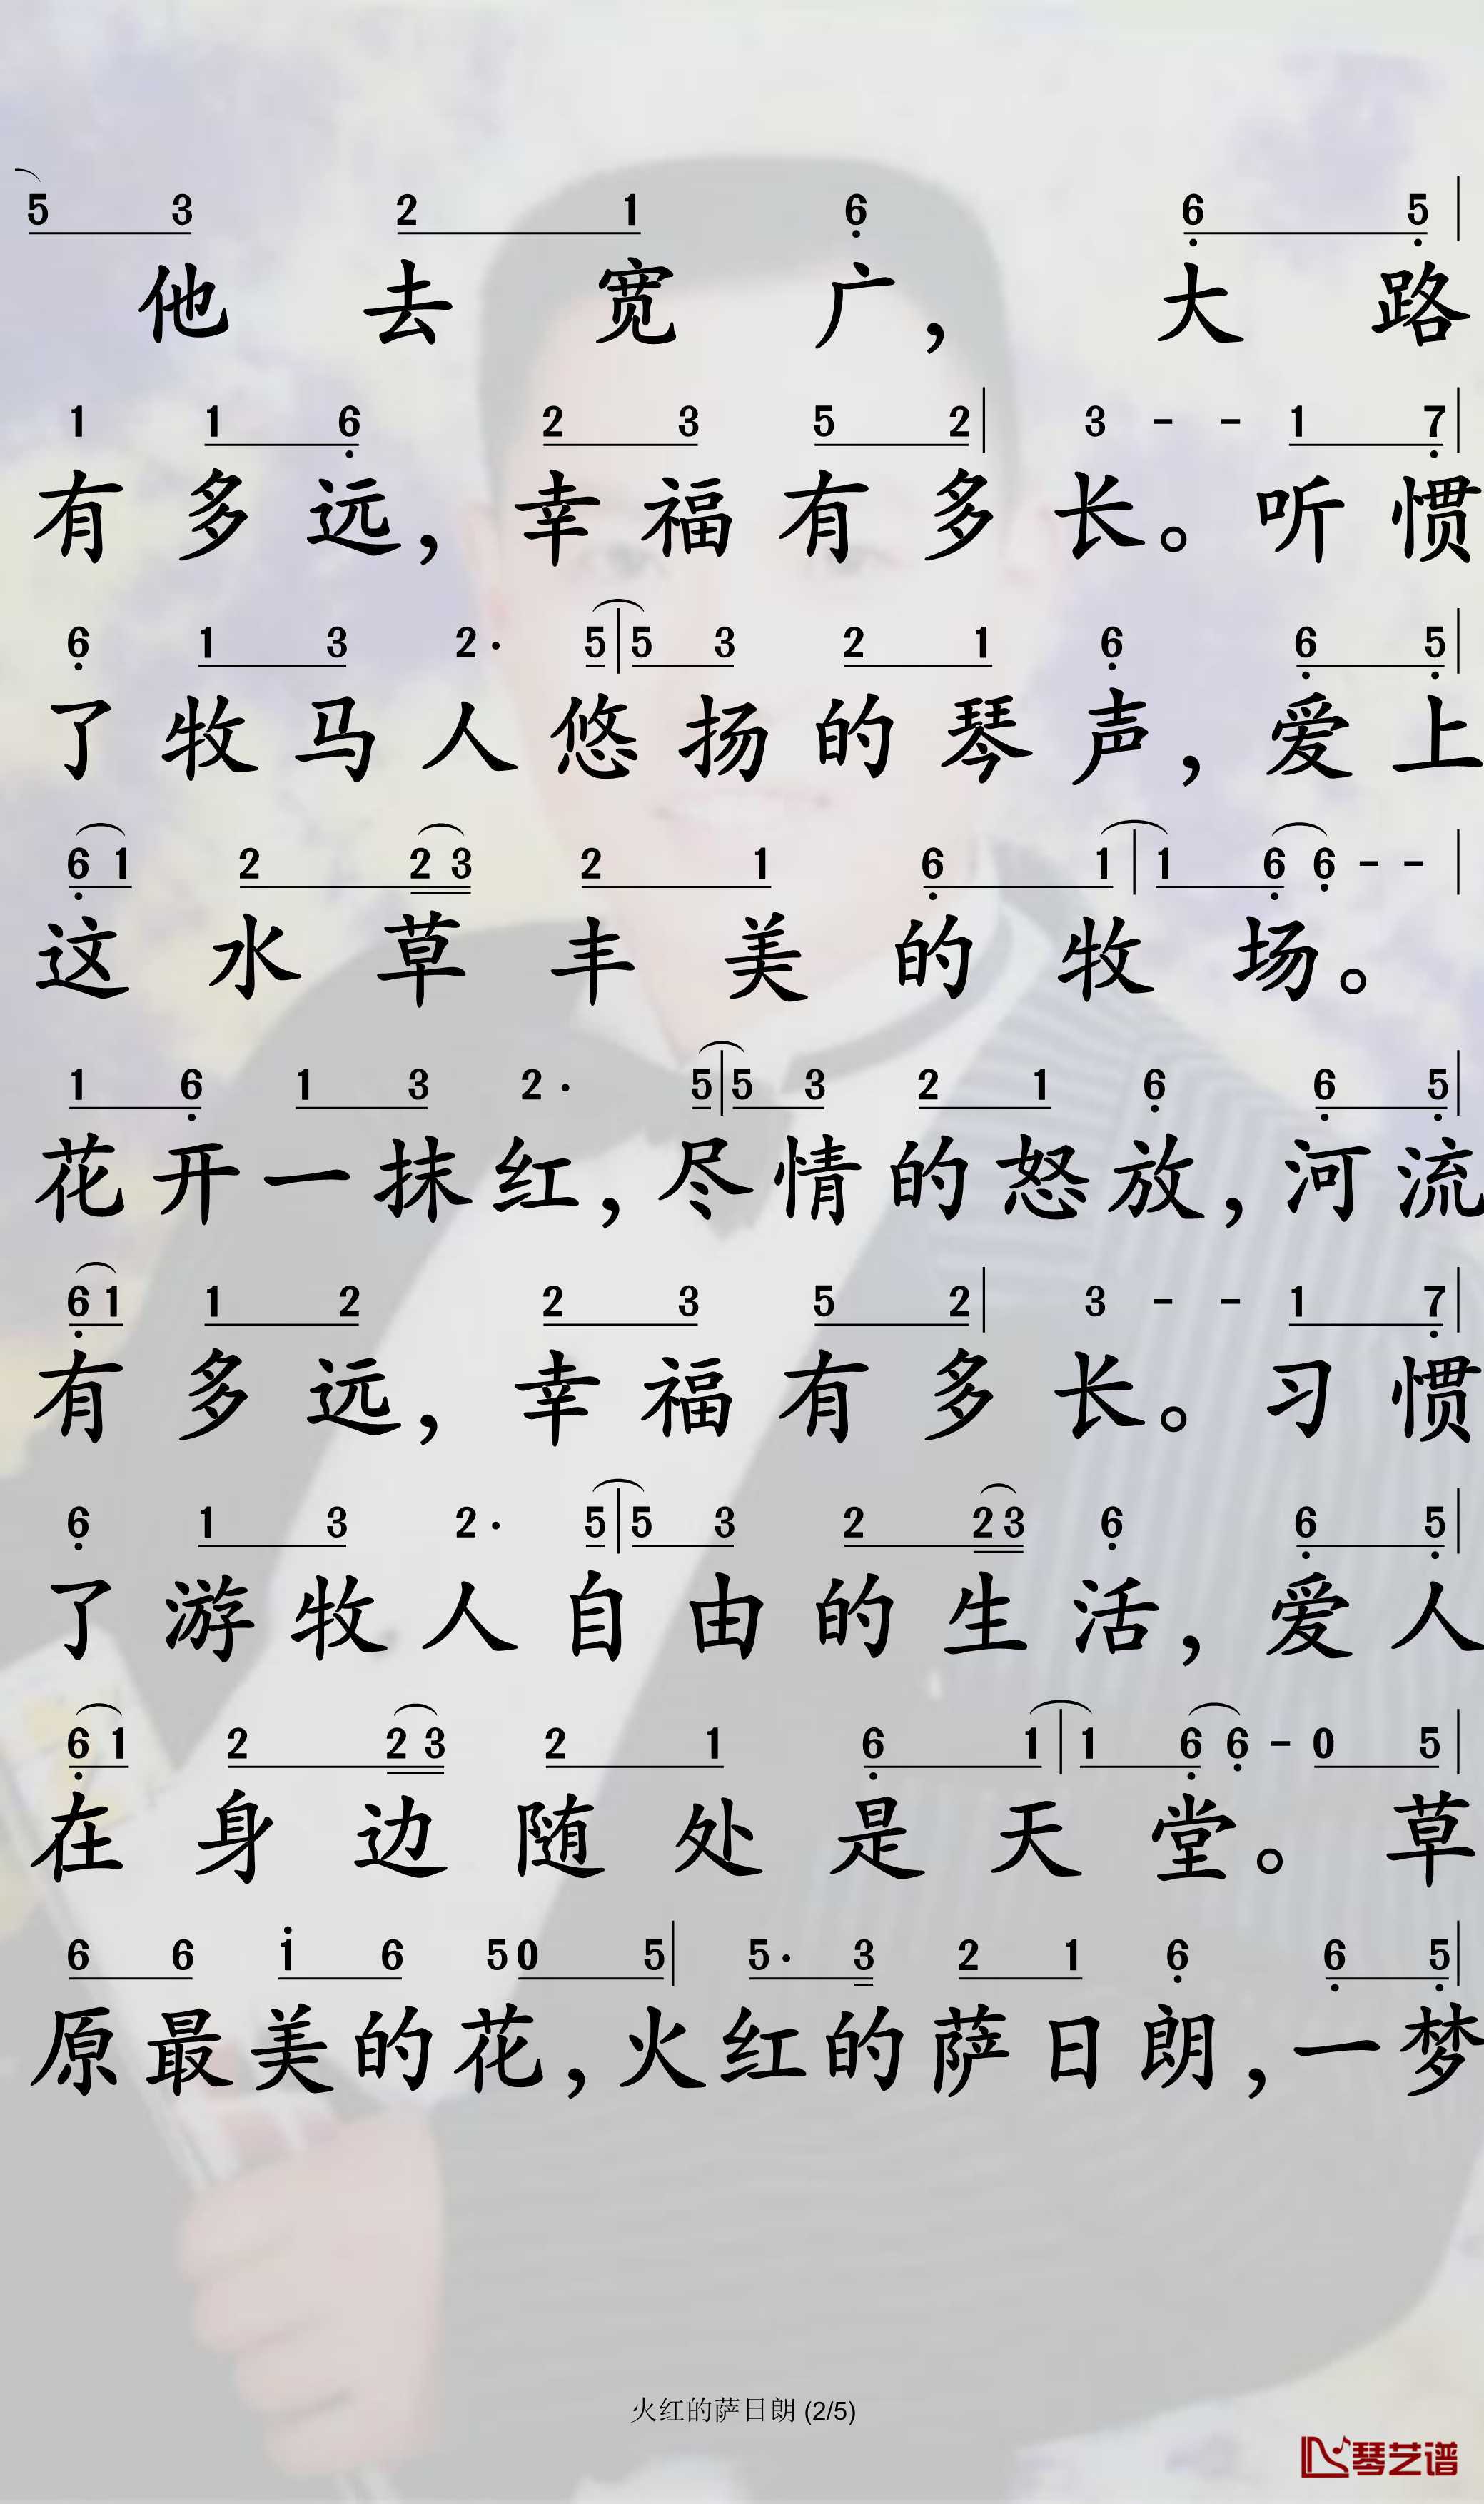 5 3 2 1 6 6 5
他去宽广，大路
1 1 6 2 3 5 2 | 3 - - 1 7 |
有多远，幸福有多长。听惯
6 1 3 2· 5 | 5 3 2 1 6 6 5 |
了牧马人悠扬的琴声，爱上
6 1 2 2 3 2 1 6 1 | 1 6 6 - - |
这水草丰美的牧场。
1 6 1 3 2· 5 | 5 3 2 1 6 6 5 |
花开一抹红，尽情的怒放，河流
6 1 1 2 2 3 5 2 | 3 - - 1 7 |
有多远，幸福有多长。习惯
6 1 3 2· 5 | 5 3 2 2 3 6 6 5 |
了游牧人自由的生活，爱人
6 1 2 2 3 2 1 6 1 | 1 6 6 - 0 5 |
在身边随处是天堂。草
6 6 1 6 5 0 5 | 5· 3 2 1 6 6 5 |
原最美的花，火红的萨日朗，一梦
火红的萨日朗 (2/5)
琴艺谱